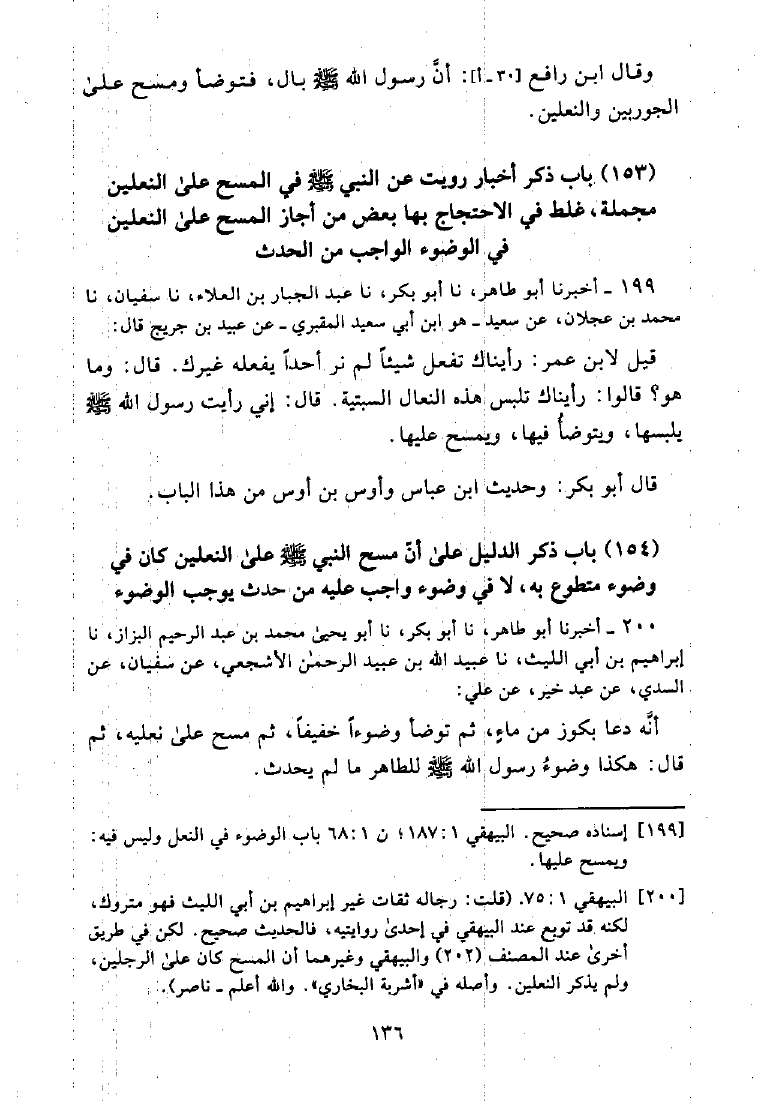 وقال ابن رافع [٣٠ - أ]: أنَّ رسول الله ﷺ بال، فتوضأ ومسح على
الجوربين والنعلين.
(١٥٣) باب ذكر أخبار رويت عن النبي ﷺ في المسح على النعلين
مجملة، غلط في الاحتجاج بها بعض من أجاز المسح على النعلين
في الوضوء الواجب من الحدث
١٩٩ - أخبرنا أبو طاهر، نا أبو بكر، نا عبد الجبار بن العلاء، نا سفيان، نا
محمد بن عجلان، عن سعيد - هو ابن أبي سعيد المقبري - عن عبيد بن جريج قال:
قيل لابن عمر: رأيناك تفعل شيئاً لم نر أحداً يفعله غيرك. قال: وما
هو؟ قالوا: رأيناك تلبس هذه النعال السبتية. قال: إني رأيت رسول الله ﷺ
يلبسها، ويتوضأُ فيها، ويمسح عليها.
قال أبو بكر: وحديث ابن عباس وأوس بن أوس من هذا الباب.
(١٥٤) باب ذكر الدليل على أنّ مسح النبي ﷺ على النعلين كان في
وضوء متطوع به، لا في وضوء واجب عليه من حدث يوجب الوضوء
٢٠٠ - أخبرنا أبو طاهر، نا أبو بكر، نا أبو يحيىٰ محمد بن عبد الرحيم البزاز، نا
إبراهيم بن أبي الليث، نا عبيد الله بن عبيد الرحمٰن الأشجعي، عن سفيان، عن
السدي، عن عبد خير، عن علي:
أنَّه دعا بكوز من ماءٍ، ثم توضأ وضوءاً خفيفاً، ثم مسح علىٰ نعليه، ثم
قال: هكذا وضوءُ رسول الله ﷺ للطاهر ما لم يحدث.
[١٩٩] إسناده صحيح. البيهقي ١: ١٨٧؛ ن ١: ٦٨ باب الوضوء في النعل وليس فيه:
ويمسح عليها.
[٢٠٠] البيهقي ١: ٧٥. (قلت: رجاله ثقات غير إبراهيم بن أبي الليث فهو متروك،
لكنه قد توبع عند البيهقي في إحدىٰ روايتيه، فالحديث صحيح. لكن في طريق
أخرىٰ عند المصنف (٢٠٢) والبيهقي وغيرهما أن المسح كان علىٰ الرجلين،
ولم يذكر النعلين. وأصله في «أشربة البخاري». والله أعلم - ناصر).
١٣٦